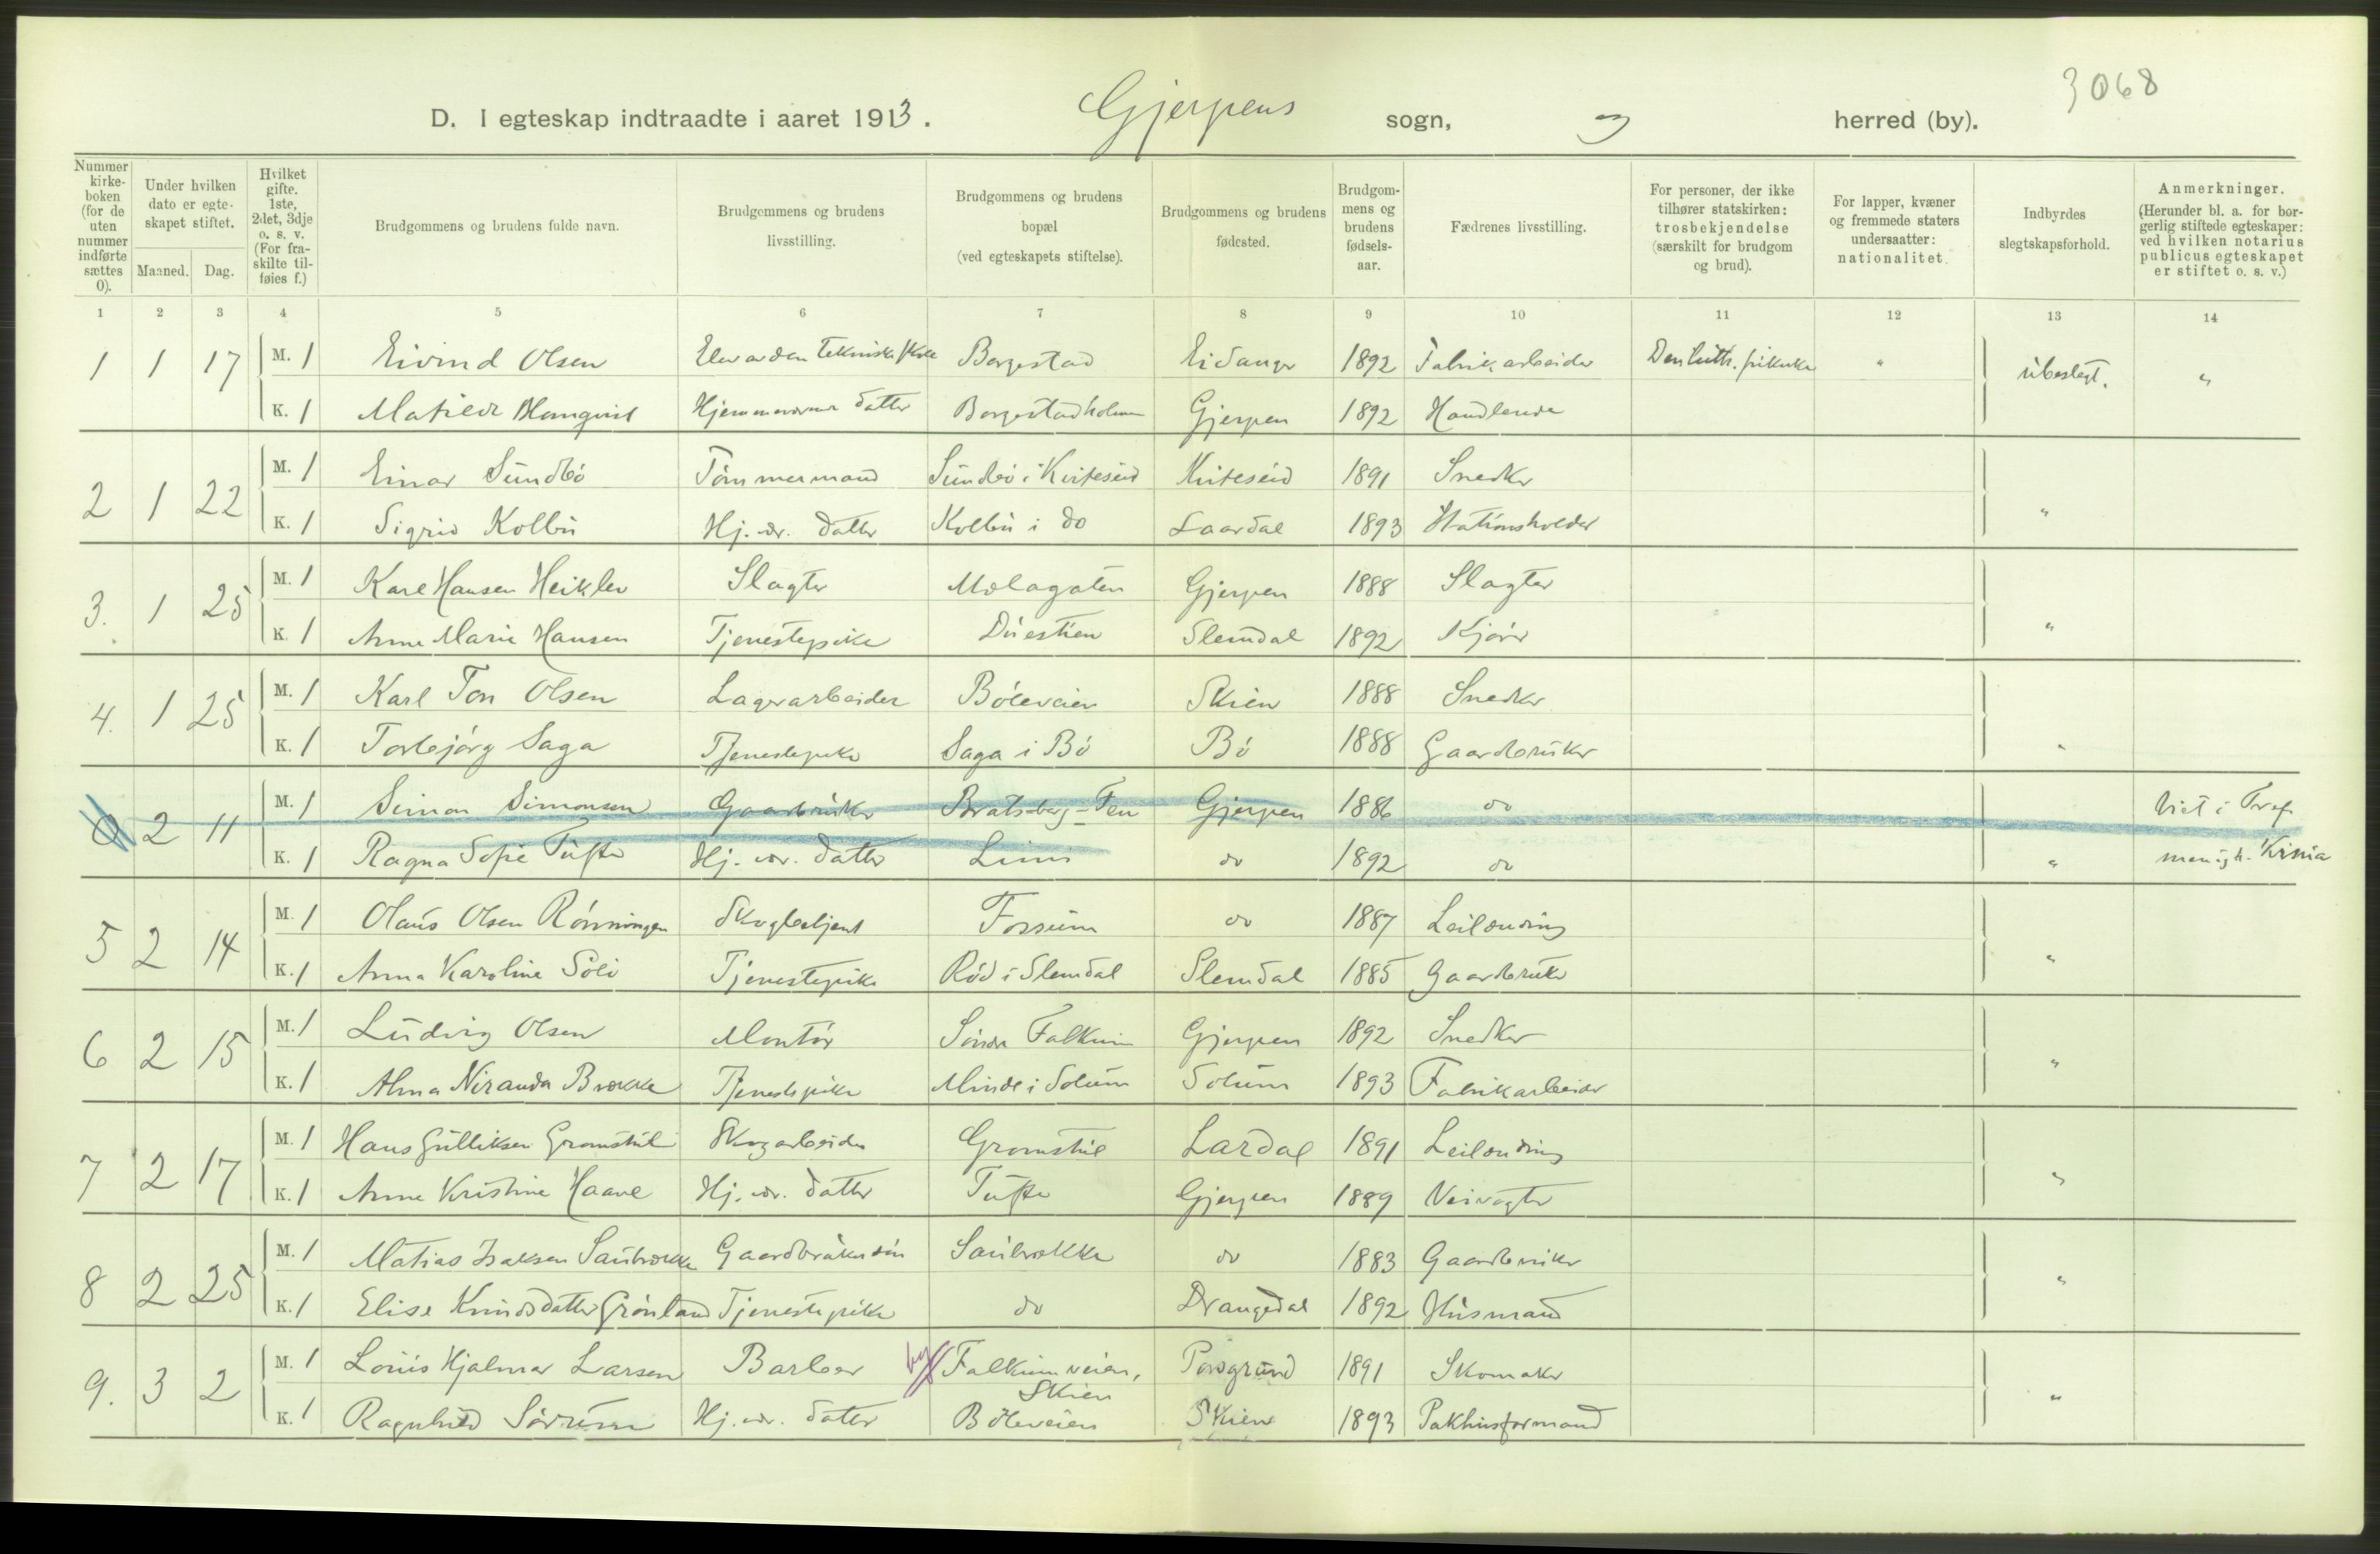 3068
D. I egteskap indtraadte i aaret 1913. Gjerpens sogn, " herred (by).
Nummer kirkeboken (for de uten nummer indførte sættes 0).
Under hvilken dato er egteskapet stiftet.
Maaned. Dag.
Hvilket gifte. 1ste, 2det, 3dje o. s. v. (For fraskilte tilføies f.)
Brudgommens og brudens fulde navn.
Brudgommens og brudens livsstilling.
Brudgommens og brudens bopæl (ved egteskapets stiftelse).
Brudgommens og brudens fødested.
Brudgommens og brudens fødselsaar.
Fædrenes livsstilling.
For personer, der ikke tilhører statskirken: trosbekjendelse (særskilt for brudgom og brud).
For lapper, kvæner og fremmede staters undersaatter: nationalitet.
Indbyrdes slegtskapsforhold.
Anmerkninger. (Herunder bl. a. for borgerlig stiftede egteskaper: ved hvilken notarius publicus egteskapet er stiftet o. s. v.)
1 2 3 4 5 6 7 8 9 10 11 12 13 14
1 1 17 M. 1 Eivind Olsen Elev av den tekniske skole Borgestad Eidanger 1892 Fabrikarbeider Den luth. frikirke " ubeslegt. "
K. 1 Matilde Hjemmeværende datter Borgestadholmen Gjerpen 1892 Handlende
2 1 22 M. 1 Einar Sundbö Tömmermand Sundbö i Kviteseid Kviteseid 1891 Snedker
K. 1 Sigrid Kolbu Hj. vær. datter Kolbu i do Laardal 1893 Stationsholder "
3. 1 25 M. 1 Karl Hansen Heikler Slagter Mælagaten Gjerpen 1888 Slagter
K. 1 Anne Marie Hansen Tjenestepike Duestien Slemdal 1892 Kjörer "
4. 1 25 M. 1 Karl Ton Olsen Lagerarbeider Böleveien Skien 1888 Snedker
K. 1 Torbjörg Saga Tjenestepike Saga i Bö Bö 1888 Gaardbruker "
0 2 11 M. 1 Simon Simonsen Gaardbruker Bratsberg-Fen Gjerpen 1886 do Viet i Tref.
K. 1 Ragna Sofie Tufte Hj. vær. datter Limi do 1892 do " menigh. Kr.nia
5 2 14 M. 1 Olaus Olsen Rönningen Skogbetjent Fossum do 1887 Leilænding
K. 1 Anna Karoline Soli Tjenestepike Röd i Slemdal Slemdal 1885 Gaardbruker "
6 2 15 M. 1 Ludvig Olsen Montör Söndre Falkum Gjerpen 1892 Snedker
K. 1 Alma Niranda Brække Tjenestepike Minde i Solum Solum 1893 Fabrikarbeider "
7 2 17 M. 1 Hans Gulliksen Gromstul Skogarbeider Gromstul Lardal 1891 Leilænding
K. 1 Anne Kristine Haave Hj. vær. datter Tufte Gjerpen 1889 Veivogter "
8 2 25 M. 1 Matias Isaksen Saubrække Gaardbrukersön Saubrække do 1883 Gaardbruker
K. 1 Elise Knudsdatter Grönland Tjenestepike do Drangedal 1892 Husmand "
9. 3 2 M. 1 Louis Hjalmar Larsen Barber by Falkumveien, Porsgrund 1891 Skomaker
Skien
K. 1 Ragnhild Sörum Hj. vær. datter Böleveien Skien 1893 Pakhusformand "